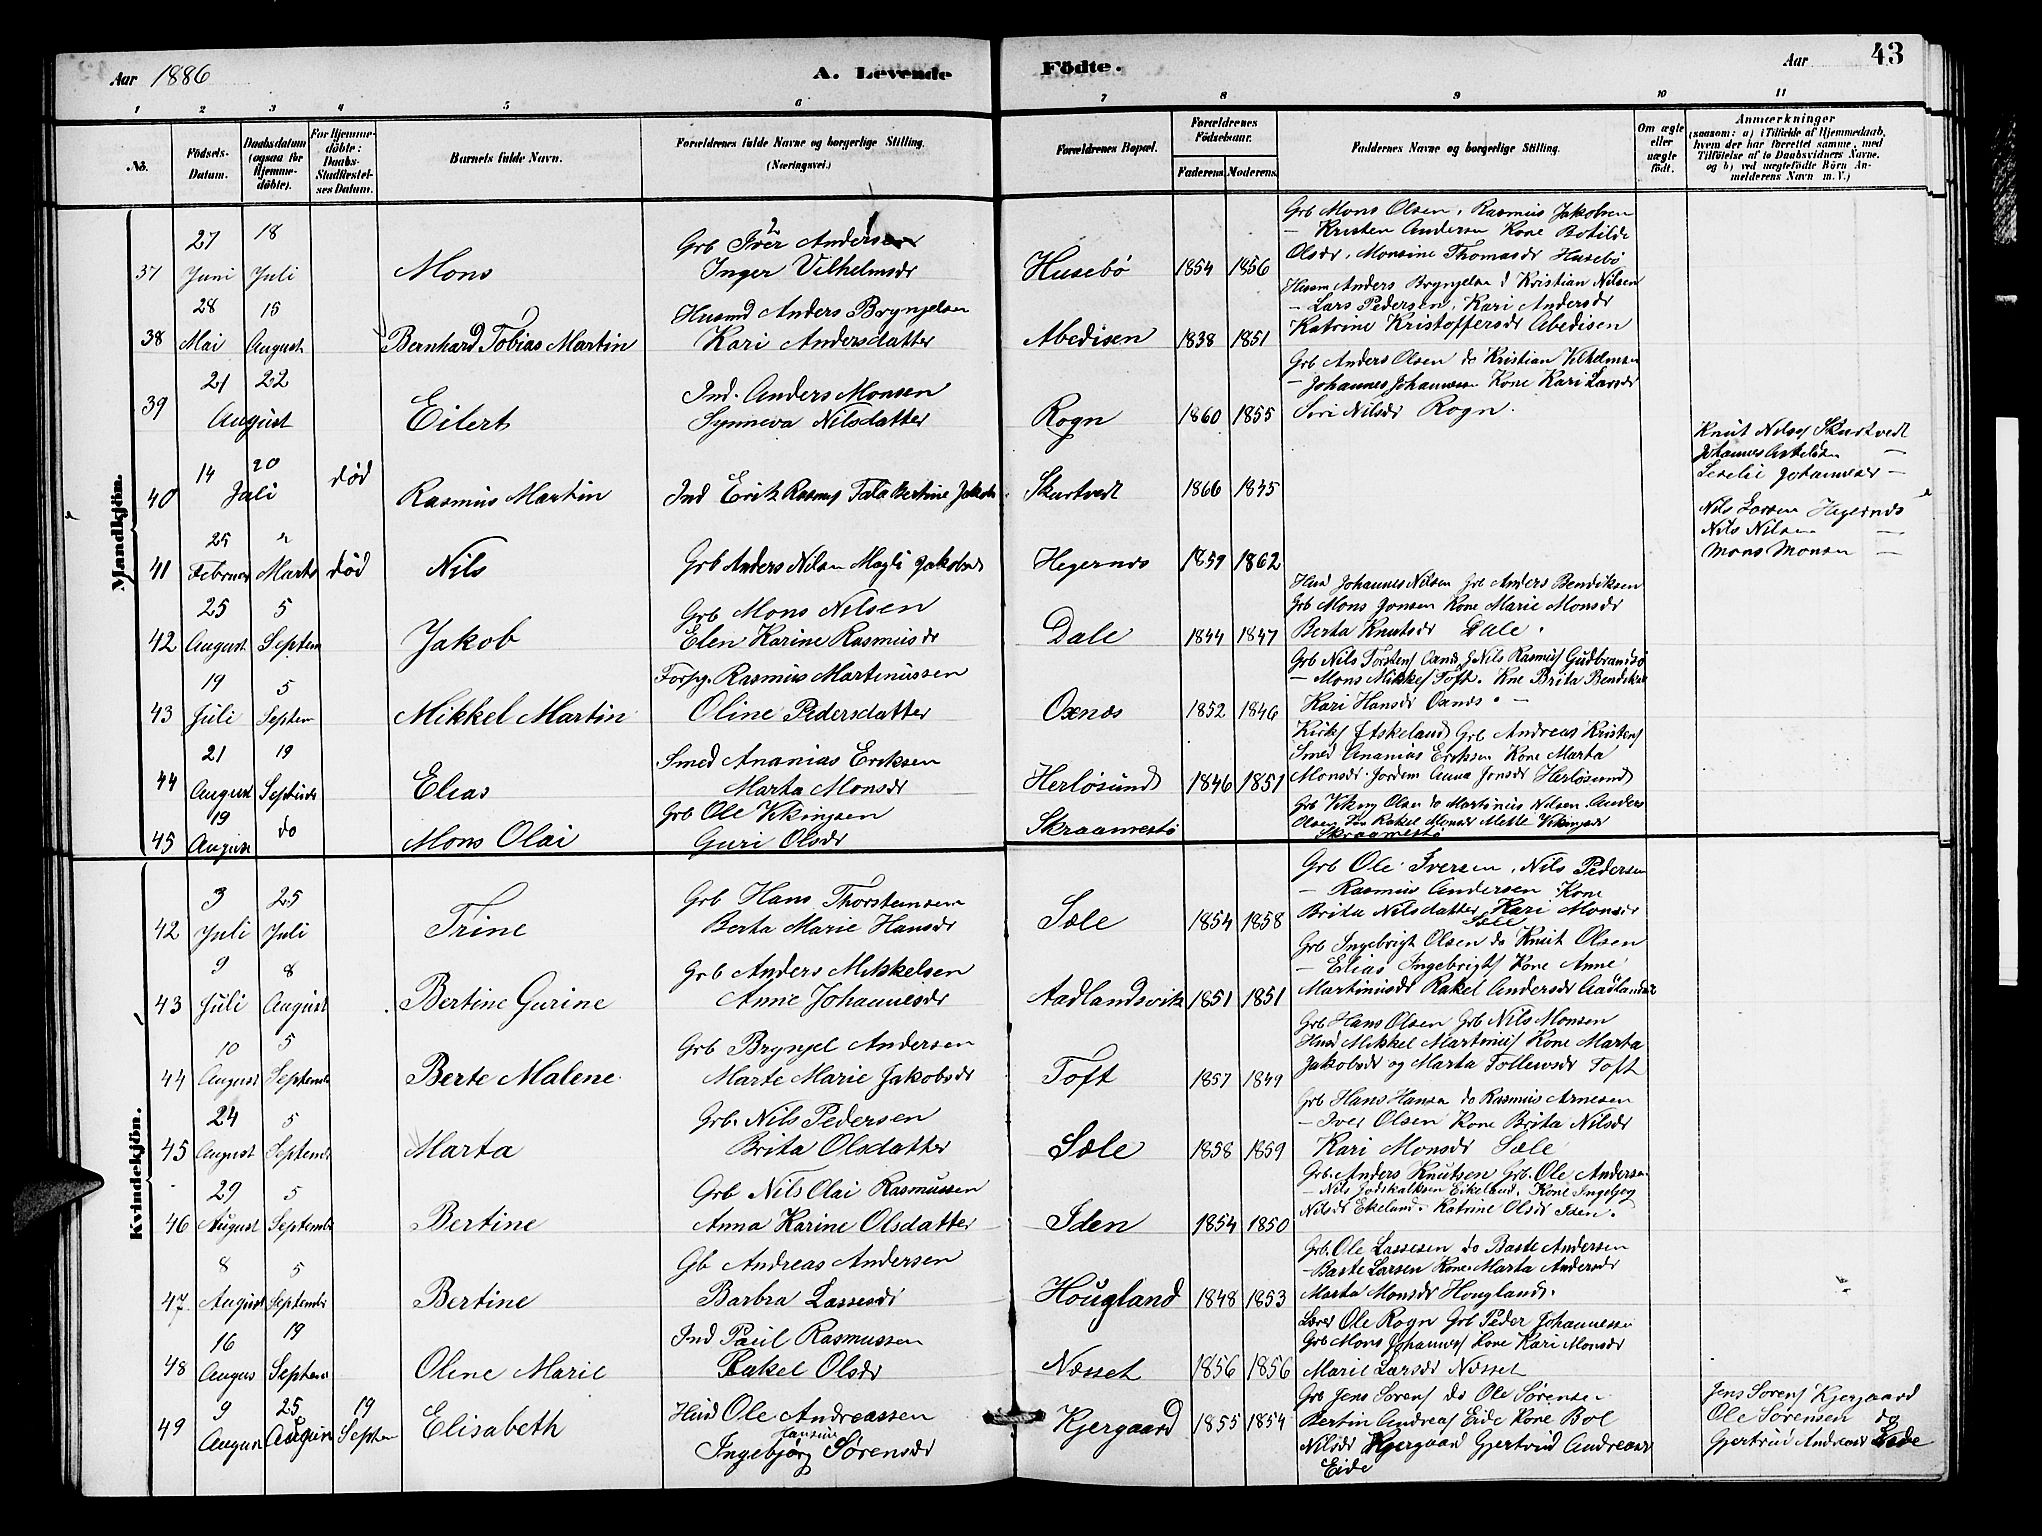 Aar 1886
A. Levende Födte.
Aar
43
1 2 3 4 5 6 7 8 9 10 11
No.
Födsels-Datum.
Daabsdatum (ogsaa for Hjemmedöbte).
For Hjemmedöbte: Daabs-Stadfæstelses Datum.
Barnets fulde Navn.
Forældrenes fulde Navne og borgerlige Stilling. (Næringsvei.)
Forældrenes Bopæl.
Forældrenes Födselsaar.
Faderens. Moderens.
Faddernes Navne og borgerlige Stilling.
Om ægte eller uægte födt.
Anmærkninger
(saasom: a) i Tilfælde af Hjemmedaab, hvem der har forrettet samme, med Tilföielse af to Daabsvidners Navne, og b) ved uægtefödte Börn Anmelderens Navn m. V.)
Mandkjön.
37 27 Juni 18 Juli Mons
Grb Iver Andersen
Inger Vilhelmsdr
Husebö 1854 1856
Grb Mons Olsen, Rasmus Jakobsen
– Kristen Andersen Kone Botilde
Olsdr, Monsine Thomasdr Husebö
38 28 Mai 15 August Bernhard Tobias Martin
Husmd Anders Brynjelsen
Kari Andersdatter
Abedisen 1838 1851
Husm Anders Brynjelsen d Kristian Nilsen
– Lars Pedersen, Kari Andersdr
Katrine Kristoffersdr Abedisen
39 21 22 August Eilert
Ind. Anders Monsen
Synneva Nilsdatter
Rogn 1860 1855
Grb Anders Olsen do Kristian Vilhelmsen
– Johannes Johannessen Kone Kari Larsdr
Siri Nilsdr Rogn.
40 14 20 Juli död Rasmus Martin
Ind Erik Rasmus Tala Bertine Jakobs
Skurtvedt 1866 1845
Knut Nilsen Skurtvedt
Johannes –
Johannesdr –
41 25 Februar 2 Marts död Nils
Grb Anders Nilsen Magli Jakobsdr
Hegernæs 1859 1862
Nils Larsen Hegernæs
Nils Nilsen –
Mons Monsen –
42 25 August 5 Septem Jakob
Grb Mons Nilsen
Elen Karine Rasmusdr
Dale 1844 1847
Husd Johannes Nilsen Grb Anders Bendiksen
Grb Mons Jonsen Kone Marie Monsdr
Berta Knutsdr Dale.
43 19 Juli 5 Septem Mikkel Martin
Forpg. Rasmus Martinussen
Oline Pedersdatter
Oxnæs 1852 1846
Grb Nils Torstens Oxnæs Nils Rasmus Gudbrandsö
– Mons Mikkels Toft. Kone Brita Bendiks
Kari Hansdr Oxnæs. –
44 21 August 19 Septembr Elias
Smed Ananias Eriksen
Marta Monsdr
Herlösund 1846 1851
Kirks Eskeland Grb Andreas Kristens
Smed Ananias Eriksen Kone Marta
Monsdr Jordem Anna Jonsdr Herlösund
45 19 August do Mons Olai
Grb Ole Vikingsen
Guri Olsdr
Skraamestö
Grb Viking Olsen do Martinus Nilsen Anders
Olsen Rakel Monsdr Mette Vikingsdr
Skraamestö
Kvindekjön.
42 3 Juli 25 Juli Trine
Grb Hans Thorstensen
Berta Marie Hansdr
Sæle 1854 1858
Grb Ole Iversen, Nils Pedersen
– Rasmus Andersen Kone
Brita Nilsdatter, Kari Monsdr
Sæle
43 9 Juli 8 August Bertine Gurine
Grb Anders Mikkelsen
Anne Johannesdr
Aadlandsvik 1851 1851
Grb Ingebrigt Olsen do Knut Olsen
– Elias Ingebrigts Kone Anne
Martinusdr Rakel Andersdr Aadlandsvik
44 10 August 5 Septembr Berte Malene
Grb Brynjel Andersen
Marte Marie Jakobsdr
Toft 1857 1849
Grb Hans Olsen Grb Nils Monsen
Husd Mikkel Martinus Kone Marta
Jakobsdr og Marta Tollevsdr Toft
45 24 August 5 Septembr Marta
Grb. Nils Pedersen
Brita Olsdatter
Sæle 1858 1859
Grb Hans Hansen do Rasmus Arnesen
– Iver Olsen Kone Brita Nilsdr
Kari Monsdr Sæle
46 29 August 5 Septembr Bertine
Grb Nils Olai Rasmussen
Anna Karine Olsdatter
Iden 1854 1850
Grb. Anders Knutsen Grb. Ole Andersen
– Nils Godskalksen Eikeland, Kone Ingeborg
Nilsdr Ekeland. Katrine Olsdr Iden.
47 8 August 5 Septembr Bertine
Gb Andreas Andersen
Barbra Lassesdr
Hougland 1848 1853
Grb. Ole Lassesen do Baste Andersen
– Baste Larsen Kone Marta Andersdr
Marta Monsdr Hougland.
48 16 August 19 Septem Oline Marie
Ind Paul Rasmussen
Rakel Olsdr
Næsset 1856 1856
Lærer Ole Rogn Grb Peder Johannessen
Grb Mons Johannes Kone Kari Monsdr
Marie Larsdr Næsset
49 9 August 25 August 19 Septem Elisabeth
Husd Ole Andreassen
Ingebjörg Jansine Sörensdr
Kjergaard 1855 1854
Grb Jens Sörens do Ole Sörensen
Bertin Andreas Eide Kone Bol
Nilsdr Kjergaard Gjertrud Andreasdr
Eide
Jens Sörens Kjergaard
Ole Sörensen do
Gjertrud Andreasdr Eide